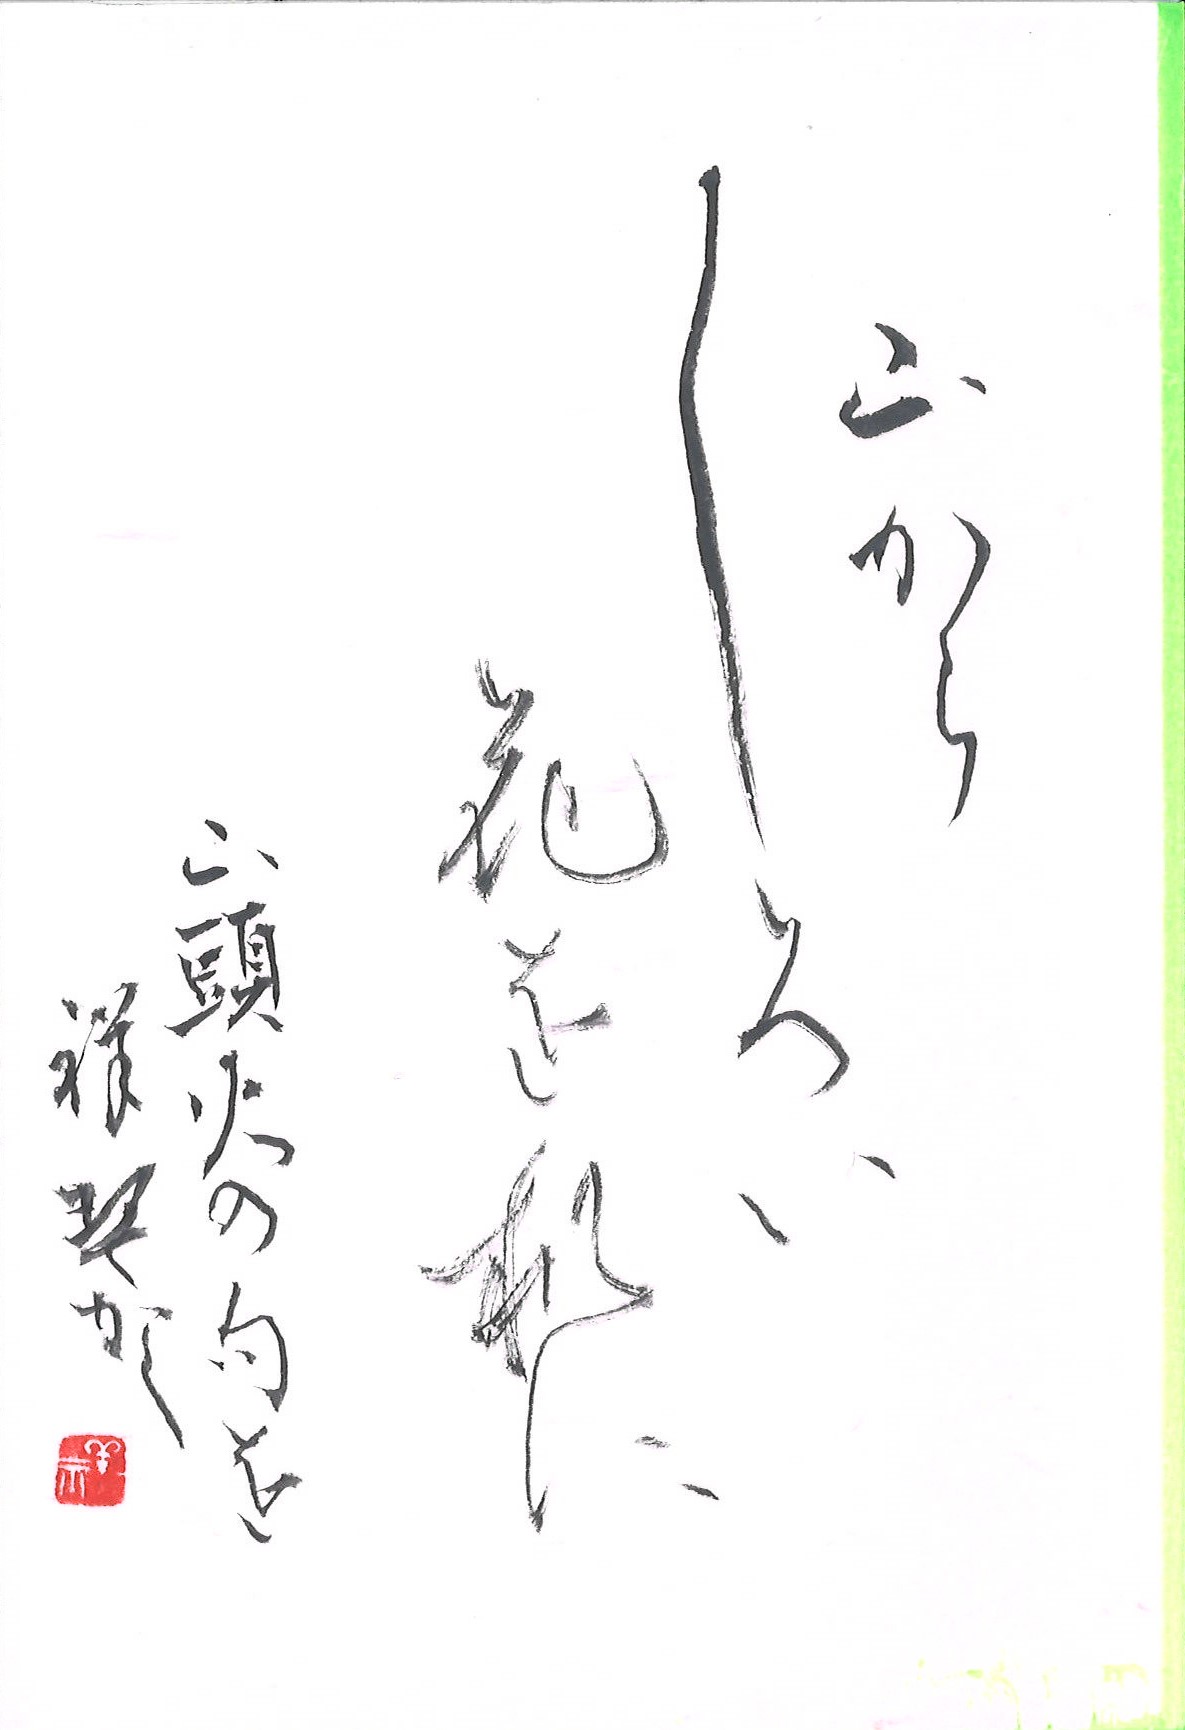 山から
しろい
花を机に
山頭火の句を
祥琴かく